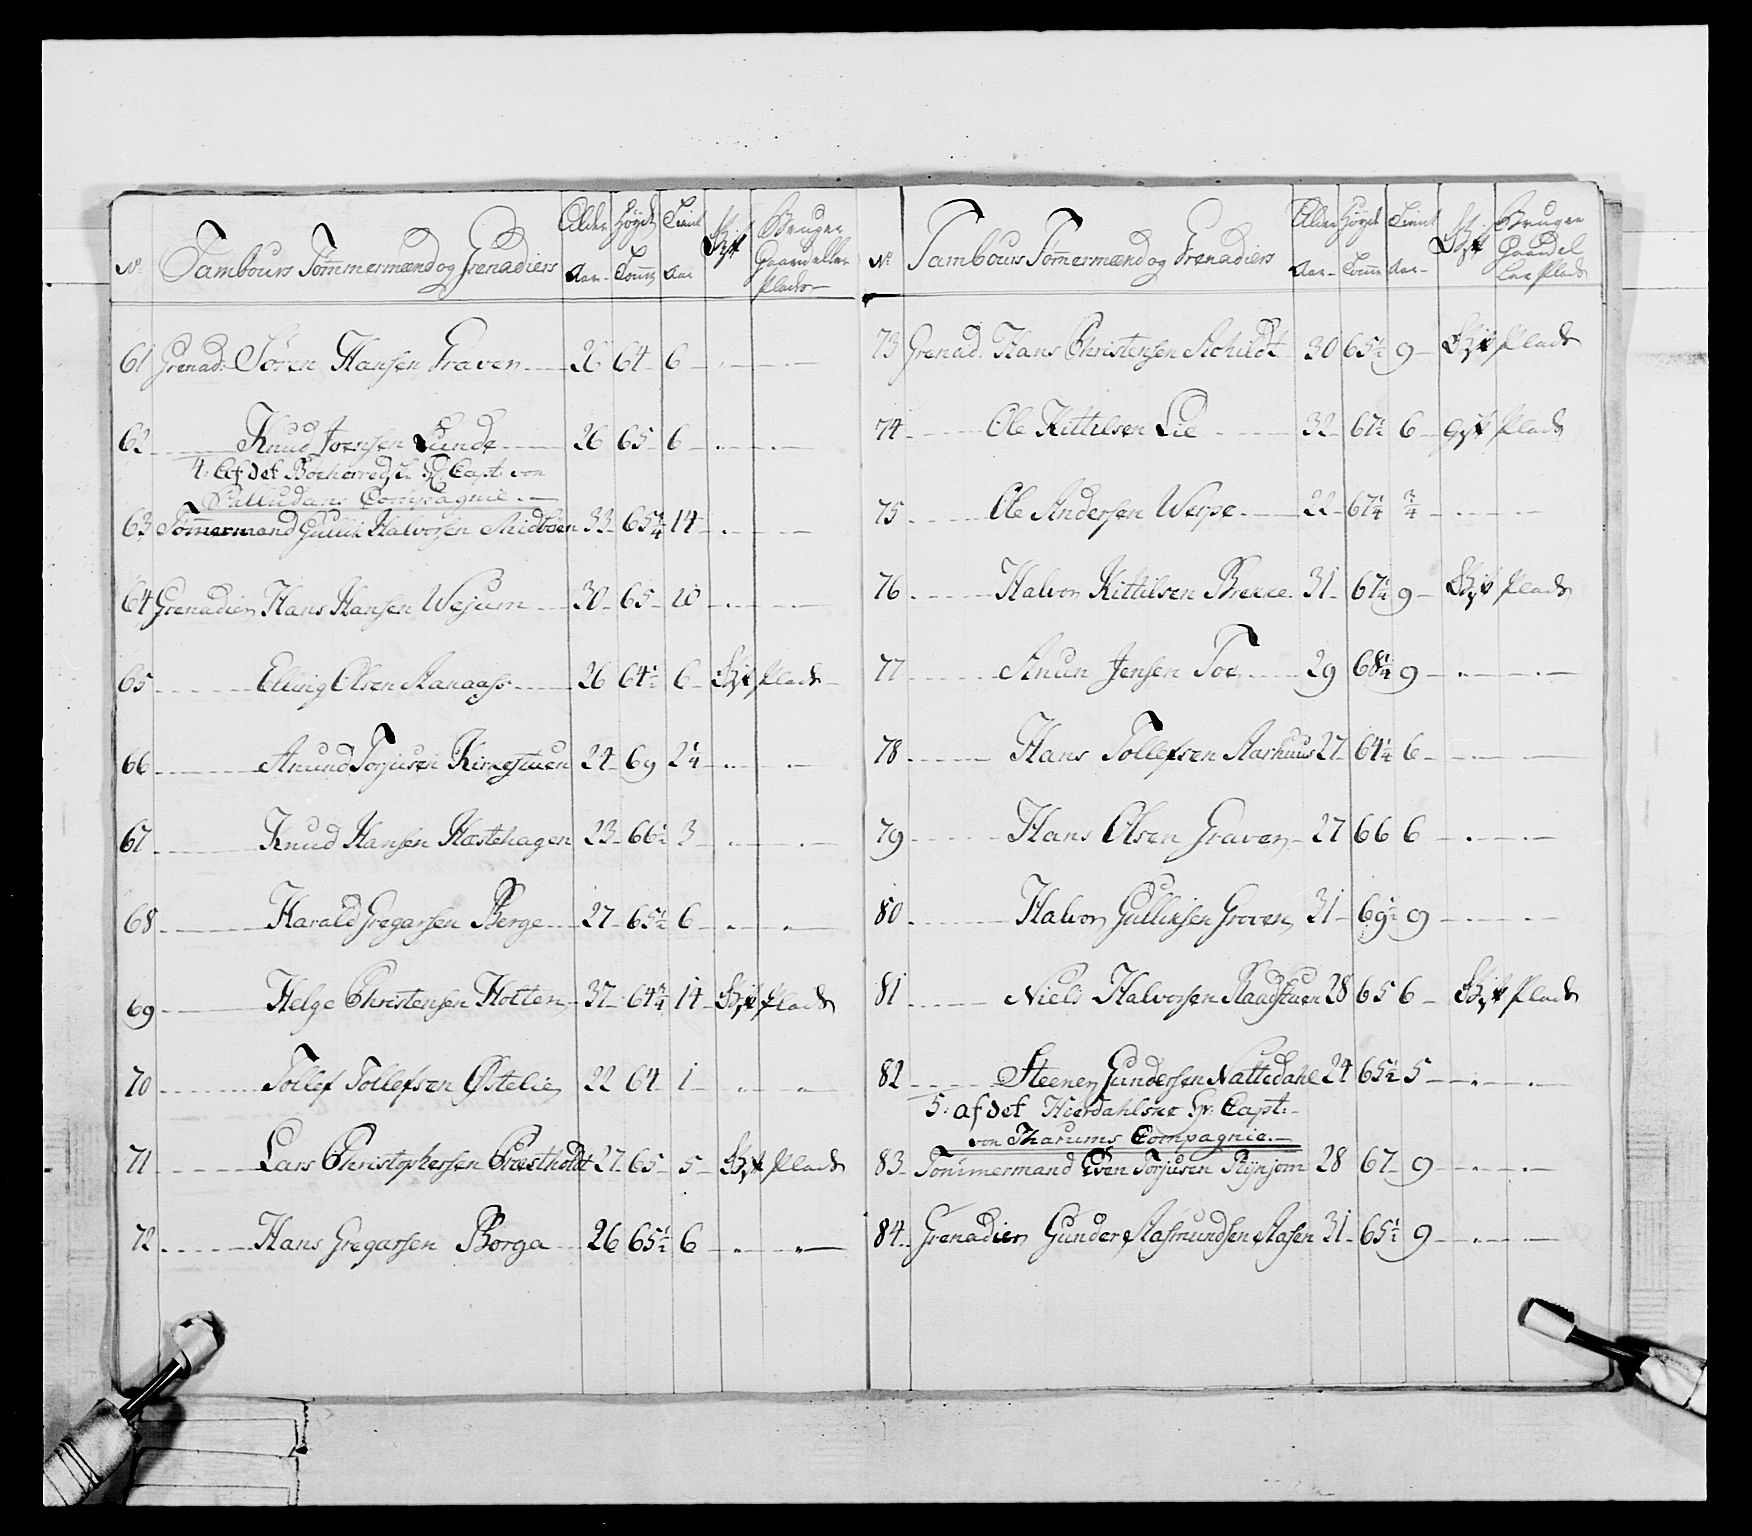 No Tambours Tømmermænd og Grenadiers Alder Aar Høyde Tome Tient Aar Gift Bruger Gaard eller Plads
61 Grenad: Søren Hansen Graven 26 64 6
62 Knud Joensen Lunde 26 65 6
4: Af det Boeherreds Capt: von
Palludans Compagnie
63 Tømmermand Gullik Halvorsen Midbøen 33 65 3/4 14
64 Grenadier Hans Hansen Wejum 30 65 10
65 Elling Olsen Aanaass 26 64 1/2 6 Gift Plads
66 Anund Torjusen 24 69 2 1/4
67 Knud Hansen Hæstehagen 23 66 1/2 3
68 Harald Gregarsen Berge 27 65 1/2 6
69 Helge Christensen Holten 37 64 3/4 14 Gift Plads
70 Tollef Tollefsen Østelie 22 64 1
71 Lars Christophersen Præstholdt 27 65 5 Gift Plads
72 Hans Gregarsen Borga 26 65 1/2 6
No Tambours Tømermænd og Grenadiers Alder Aar Høyde Tome Tient Aar Gift Bruger Gaard eller Plads
73 Grenad: Hans Christensen Aschildt 30 65 1/2 9 Gift Plads
74 Ole Kittilsen Lie 32 67 1/2 6 Gift Plads
75 Ole Andersen Werpe 22 67 1/4 3/4
76 Halvor Kittilsen Brekke 31 67 1/2 9 Gift Plads
77 Anun Jensen Toe 29 68 1/4 9
78 Hans Tollefsen Aarhuus 27 64 1/4 6
79 Hans Olsen Graven 27 66 6
80 Halvor Gulliksen Groven 31 69 1/2 9
81 Niels Halvorsen Raadstuen 28 65 6 Gift Plads
82 Steener Gundersen Nattedahl 24 65 1/2 5
5: af det Hierdahlske Gr: Capt:
von Tharums Compagnie
83 Tømmermand Even Torjusen Rynjom 28 67 9
84 Grenadier Gunder Aasmundsen Aasen 31 65 1/2 9